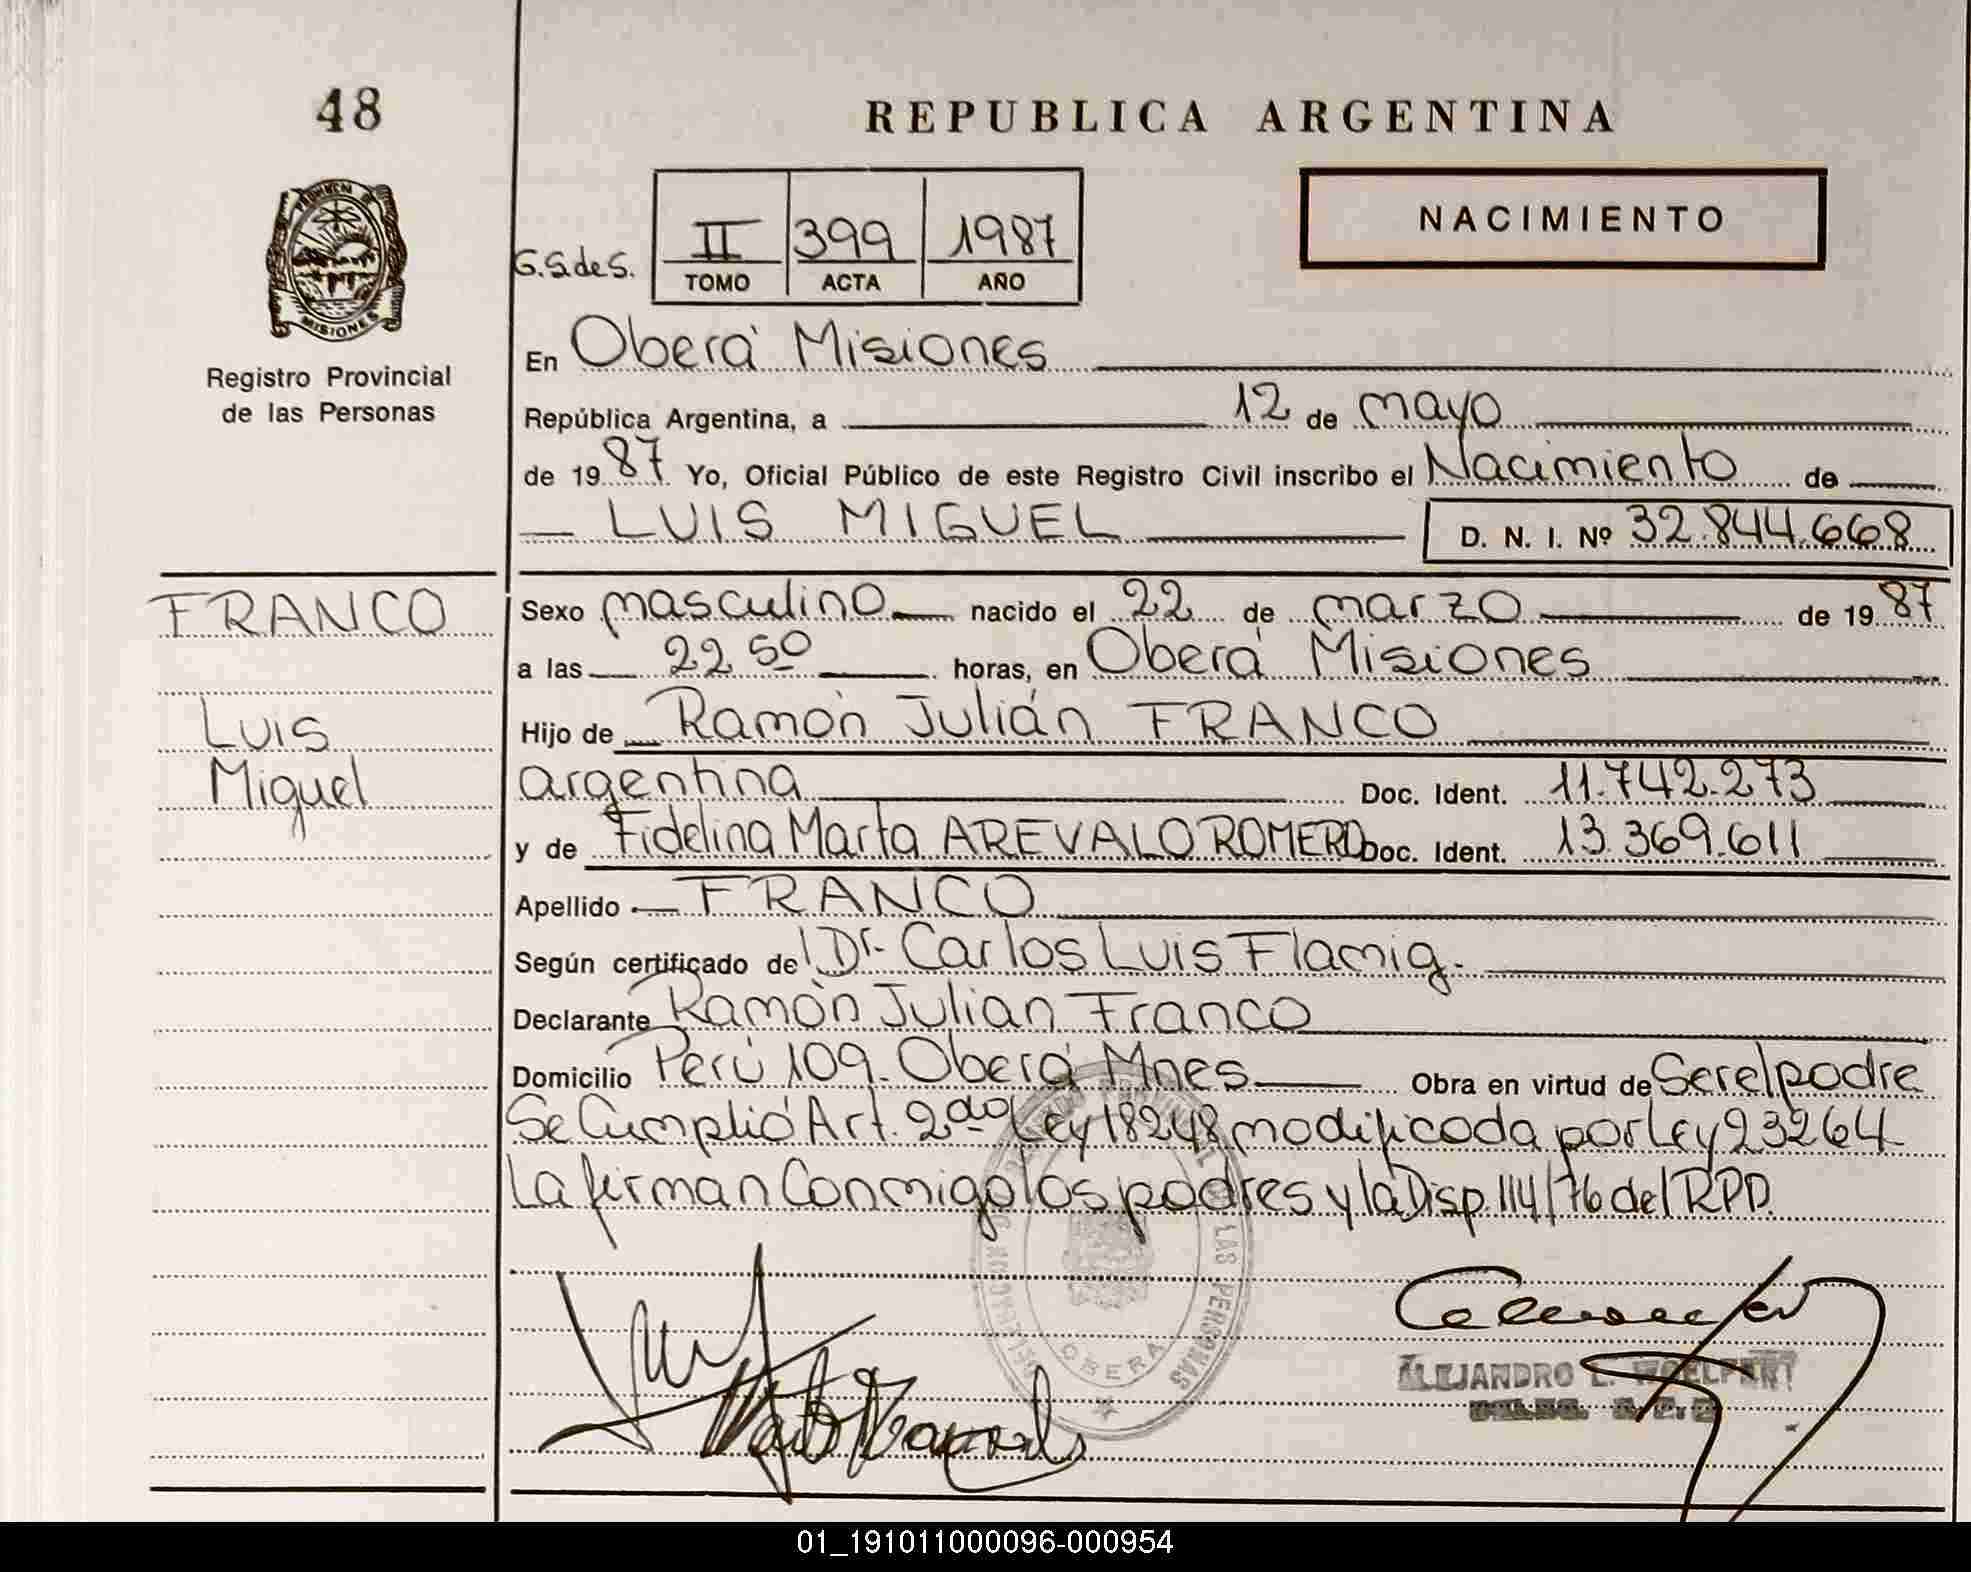 48
REPUBLICA ARGENTINA
PROVINCIA DE
MISIONES
Registro Provincial
de las Personas
G.S.deS.
II 399 1987
TOMO ACTA AÑO
NACIMIENTO
En Oberá Misiones
República Argentina, a 12 de mayo
de 1987 Yo, Oficial Público de este Registro Civil inscribo el Nacimiento de
LUIS MIGUEL D. N. I. Nº 32.844.668
FRANCO
Luis
Miguel
Sexo masculino nacido el 22 de marzo de 1987
a las 22 50 horas, en Oberá Misiones
Hijo de Ramón Julián FRANCO
argentina Doc. Ident. 11.742.273
y de Fidelina Marta AREVALO ROMERO Doc. Ident. 13.369.611
Apellido FRANCO
Según certificado de Dr. Carlos Luis Flamig.
Declarante Ramón Julian Franco
Domicilio Perú 109. Oberá Mnes Obra en virtud de Ser el padre
Se Cumplió Art. 2do Ley 18248 modificada por Ley 23264
La firman Conmigo los padres y la Disp. 114/76 del RPD.
LAS PERSONAS
OBERA
ALEJANDRO L.
01_191011000096-000954